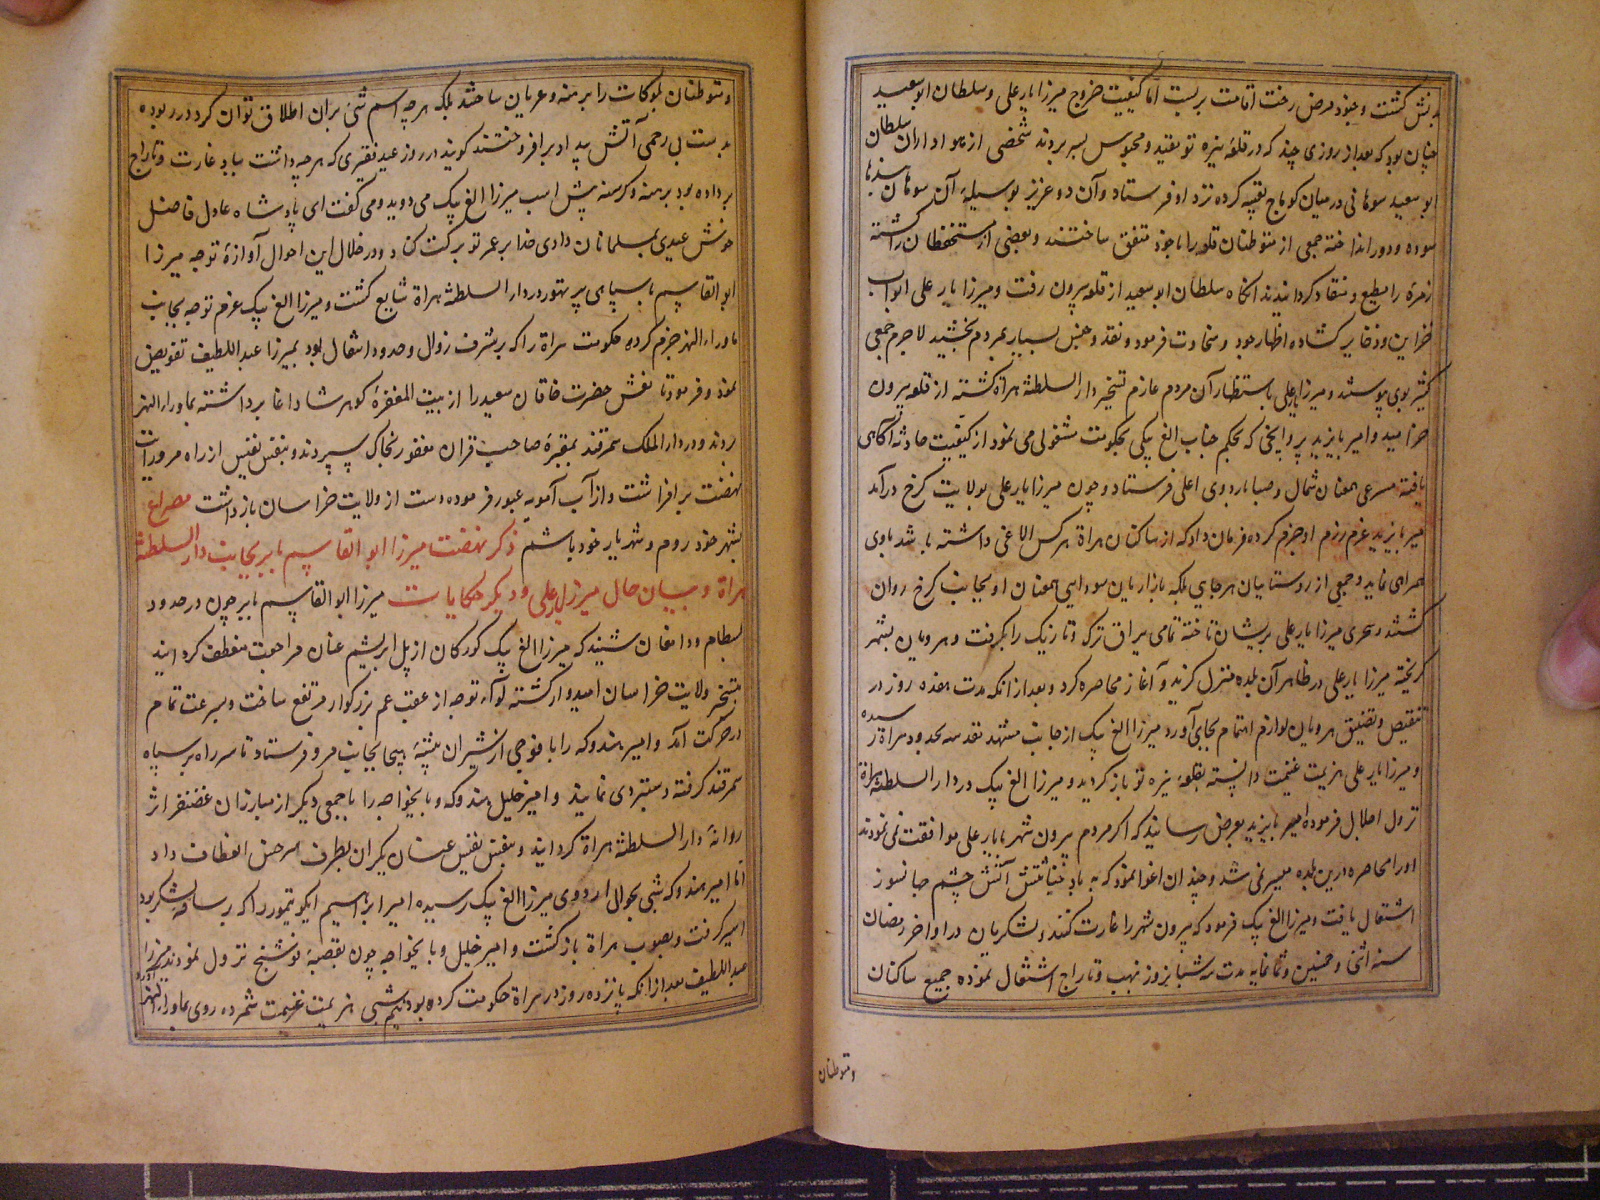 بدنش گشت و جنود مرض رخت اقامت بربست اما کیفیت خروج میرزا یار علی و سلطان ابوسعید
چنان بود که بعد از روزی چند که در قلعه نیره تو مقید و محبوس بسر بردند شخصی از هواداران سلطان
ابوسعید سوهانی در میان کوماج تعبیه کرده نزد او فرستاد و آن دو عزیز بوسیله آن سوهان بندها
سوده و دور انداخته جمعی از متوطنان قلعه را با خود متفق ساختند و بعضی از مستحفظان را کشته
زمره را مطیع و منقاد گردانیدند آنگاه سلطان ابوسعید از قلعه بیرون رفت و میرزا یار علی ابواب
خزاین و ذخایر گشاده اظهار جود و سخاوت فرمود و نقد و جنس بسیار بمردم بخشید لاجرم جمعی
کثیر بوی پیوستند و میرزا یار علی باستظهار آن مردم عازم تسخیر دار السلطنه هراة گشته از قلعه بیرون
خرامید و امیر بایزید پروانچی که بحکم جناب الغ بیکی بحکومت مشغولی می نمود از کیفیت حادثه آگاهی
یافته مسرعی همعنان شمال و صبا باردوی اعلی فرستاد و چون میرزا یار علی بولایت کرخ درآمد
میر بایزید عزم رزم او جزم کرده فرمان داد که از ساکنان هراة هر کس الاغی داشته باشد باوی
همراهی نماید و جمعی از روستاییان هرجایی بلکه بازاریان سودایی همعنان او بجانب کرخ روان
گشتند و سحری میرزا یار علی بریشان تاخته تمامی یراق ترک و تازیک را بگرفت و هرویان بشهر
گریخته میرزا یار علی در ظاهر آن بلده منزل گزید و آغاز محاصره کرد و بعد از آنکه مدت هفده روز در
تنقیص و تضییق هرویان لوازم اهتمام بجای آورد میرزا الغ بیک از جانب مشهد مقدسه بحدود هراة رسیده
و میرزا یار علی هزیمت غنیمت دانسته بقلعه نیره تو باز گردید و میرزا الغ بیک در دار السلطنه هراة
نزول اجلال فرموده امیر بایزید بعرض رسانید که اگر مردم بیرون شهر با یار علی موافقت نمی نمودند
او را محاصره درین بلده میسر نمی شد و چندان اغوا نمود که به باد خباثتش آتش چشم جانسوز
اشتعال یافت و میرزا الغ بیک فرمود که بیرون شهر را غارت کنند و لشکریان در اواخر رمضان
سنه اثنی و خمسین و ثمانمایه مدت سه شبانروز بنهب و تاراج اشتغال نموده جمیع ساکنان
و متوطنان
و متوطنان بلوکات را برهنه و عریان ساختند بلکه هرچه اسم شئ بران اطلاق توان کرد در ربوده
بدست بی رحمی آتش بیداد برافروختند گویند در روز عید فقیری که هرچه داشت بباد غارت و تاراج
برداده بود برهنه و گرسنه پیش اسب میرزا الغ بیک می دوید و می گفت ای پادشاه عادل فاضل
خوش عیدی بمسلمانان دادی خدا بر عمر تو برکت کناد و در خلال این احوال آوازه توجه میرزا
ابو القاسم با سپاهی پر تهور در دار السلطنه هراة شایع گشت و میرزا الغ بیک عزم توجه بجانب
ماوراء النهر جزم کرده حکومت هراة را که بر شرف زوال و صدد انتقال بود بمیرزا عبد اللطیف تفویض
نمود و فرمود تا نعش حضرت خاقان سعید را از بیت المغفره گوهرشاد اغا برداشته بماوراء النهر
بردند و در دار الملک سمرقند بمقبره صاحب قران مغفور بخاک سپردند و بنفس نفیس از راه مرو رایات
نهضت برافراشت و از آب آمویه عبور فرموده دست از ولایت خراسان بازداشت مصراع
بشهر خود روم و شهریار خود باشم ذکر نهضت میرزا ابو القاسم بابر بجانب دار السلطنه
هراة و بیان حال میرزا یار علی و دیگر حکایات میرزا ابو القاسم بابر چون در حدود
بسطام و دامغان شنید که میرزا الغ بیک کورکان از پل ابریشم عنان مراجعت منعطف گردانید
بتسخیر ولایت خراسان امیدوار گشته لواء توجه از عقب عم بزرگوار مرتفع ساخت و بسرعت تمام
در حرکت آمد و امیر هندوکه را با فوجی از شیران بیشه هیجا بجانب مرو فرستاد تا سر راه بر سپاه
سمرقند گرفته دستبردی نمایند و امیر خلیل هندوکه و بابا خواجه را با جمعی دیگر از مبارزان غضنفر اثر
روانه دار السلطنه هراة گردانید و بنفس نفیس عنان یکران بطرف سرخس انعطاف داد
اما امیر هندوکه شبی بحوالی اردوی میرزا الغ بیک رسیده امیر ابراهیم ایکو تیمور را که بر ساقه لشکر بود
اسیر گرفت و بصوب هراة بازگشت و امیر خلیل و بابا خواجه چون بقصبه فوشنج نزول نمودند میرزا
عبد اللطیف بعد از آنکه پانزده روز در هراة حکومت کرده بود نیم شبی هزیمت غنیمت شمرده روی بماوراء النهر آورد